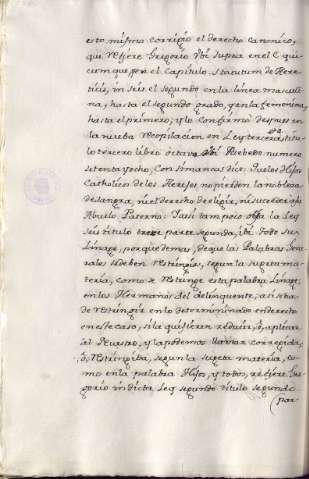 esto mismo corrigio el derecho canonico,
que refiere Gregorio Vbi supra en el C qui
cumque, por el Capitulo Statutum de Here
ticis, in seis el segundo en la linea mascuLi
na, hasta el segundo grado, y en la femenina,
hasta el primero; y lo Confirmó despues en
la nueba recopilacion en Ley tercera, ti
tulo tercero libro octavo Vbi Azebedo numero
setenta y ocho, Con Simancas dice: que los Hijos
Catholicos de los Herejes no pierden la nobleza
de sangre, ni el derecho de elijir, ni suceder
Abuelo Paterno: Y assi tampoco obsta la Ley
seis titulo trece parte segunda, ibi: todo su
Linage, porque demas, de que las Palabras Gene
rales se deben restringir, segun la supta mate
teria, como se restringe esta palabra Linage;
en los Hermanos del delinquente; assi se ha
de restringir en lo determinado en derecho
en este caso, si la quisieren reducir, ó, aplicar
al Nuestro, y la podemos llamar corregida,
ó, restringida, segun la supta materia, co
mo en la palabra Hijos, y todos, refiere Gre
gorio in dicta Ley segundo titulo segundo
(par